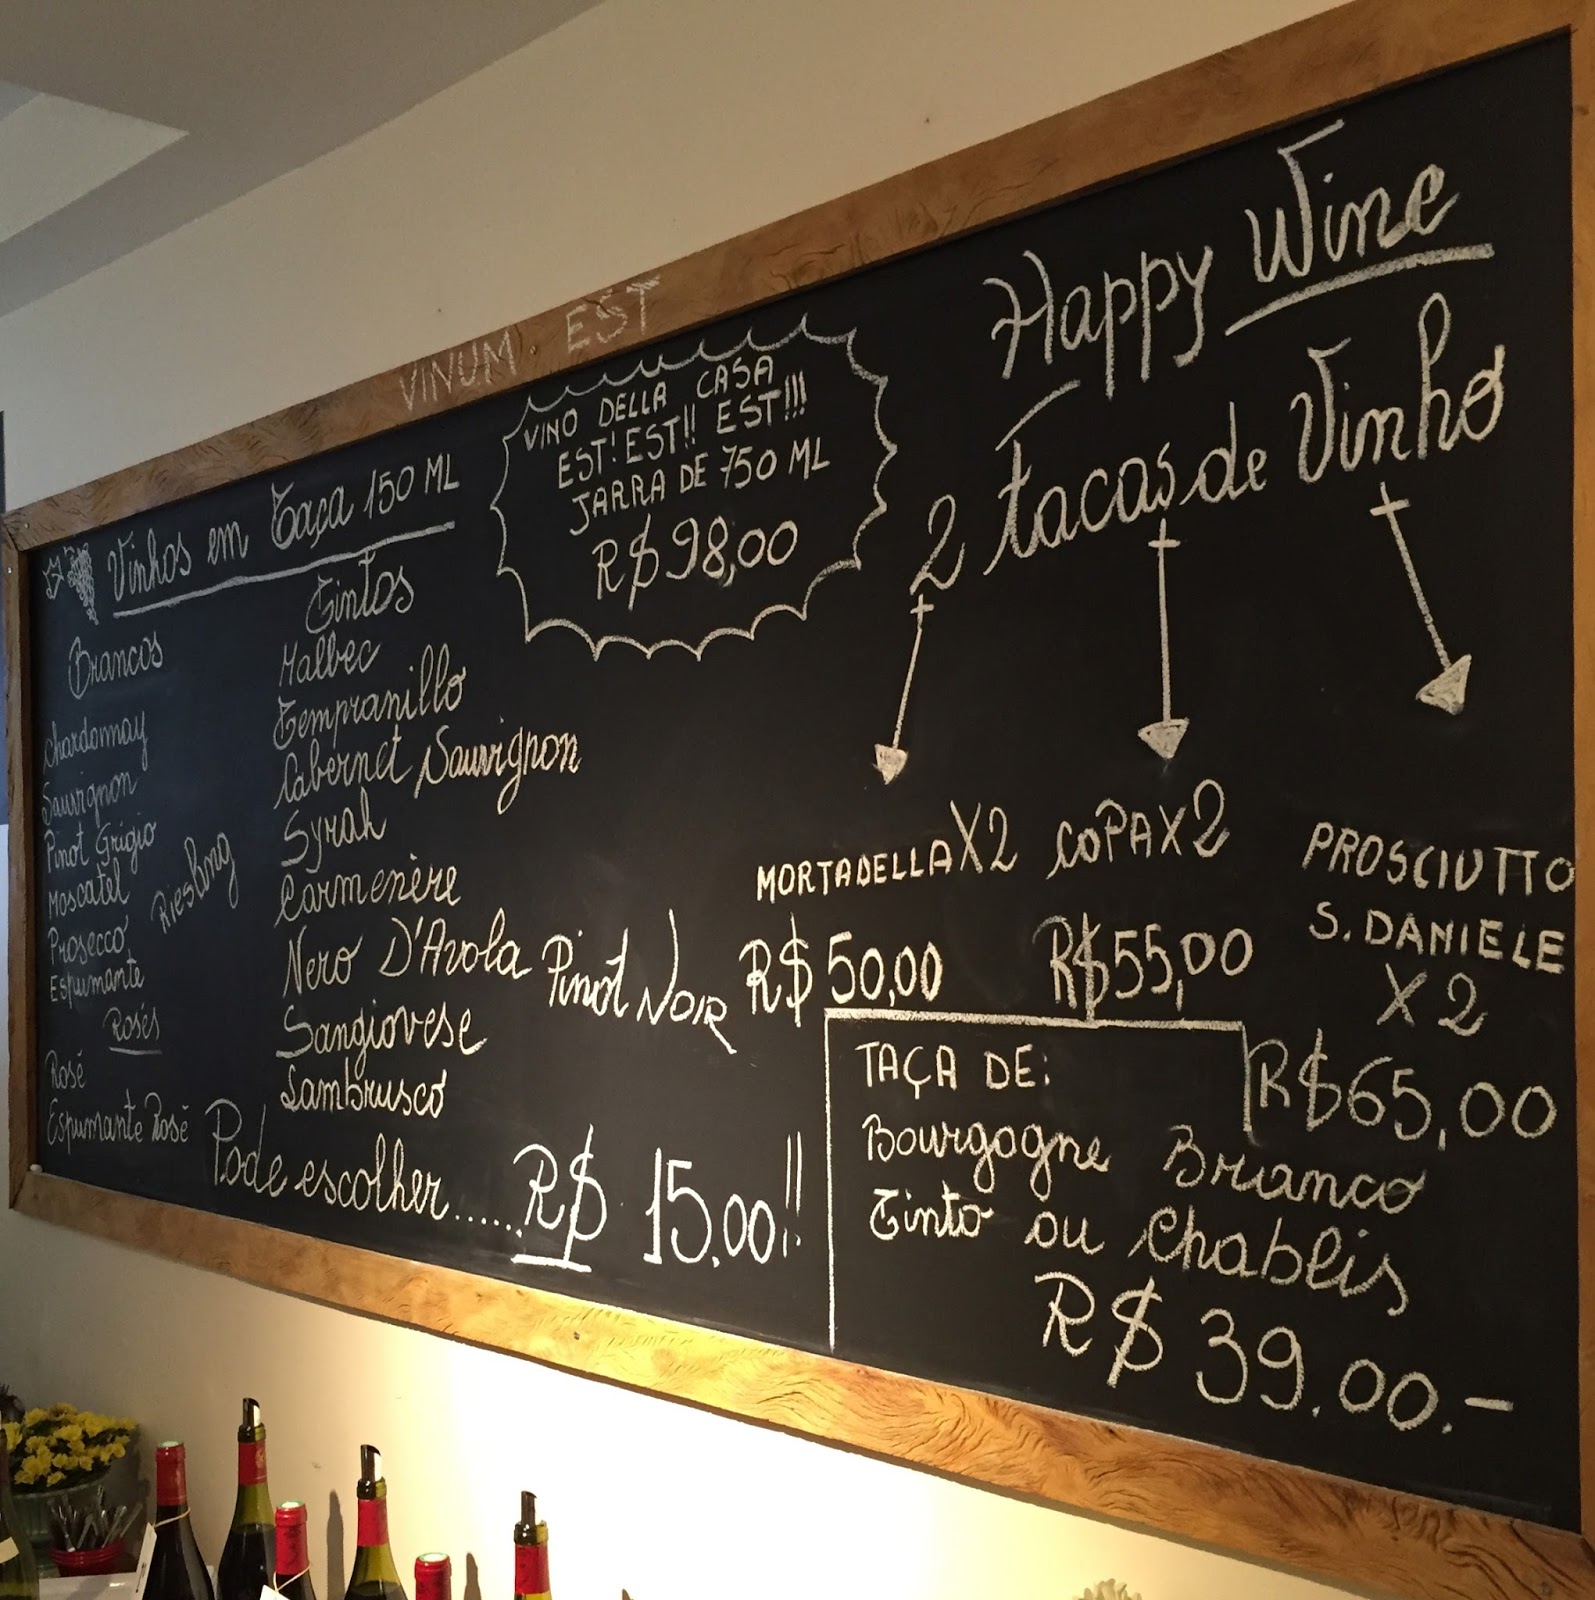 VINUM EST
Vinhos em Taça 150 ML
Brancos
Chardonnay
Sauvignon
Pinot Grigio
Moscatel
Prosecco
Espumante
Riesling
Rosés
Rosé
Espumante Rosé
Tintos
Malbec
Tempranillo
Cabernet Sauvignon
Syrah
Carmenère
Nero D'Avola
Pinot Noir
Sangiovese
Lambrusco
Pode escolher...... R$ 15,00!!
VINO DELLA CASA
EST! EST!! EST!!!
JARRA DE 750 ML
R$ 98,00
Happy Wine
2 Tacas de Vinho
MORTADELLA X2
R$ 50,00
COPA X2
R$ 55,00
PROSCIUTTO
S. DANIELE
X 2
R$ 65,00
TAÇA DE:
Bourgogne Branco
Tinto ou Chablis
R$ 39.00.-